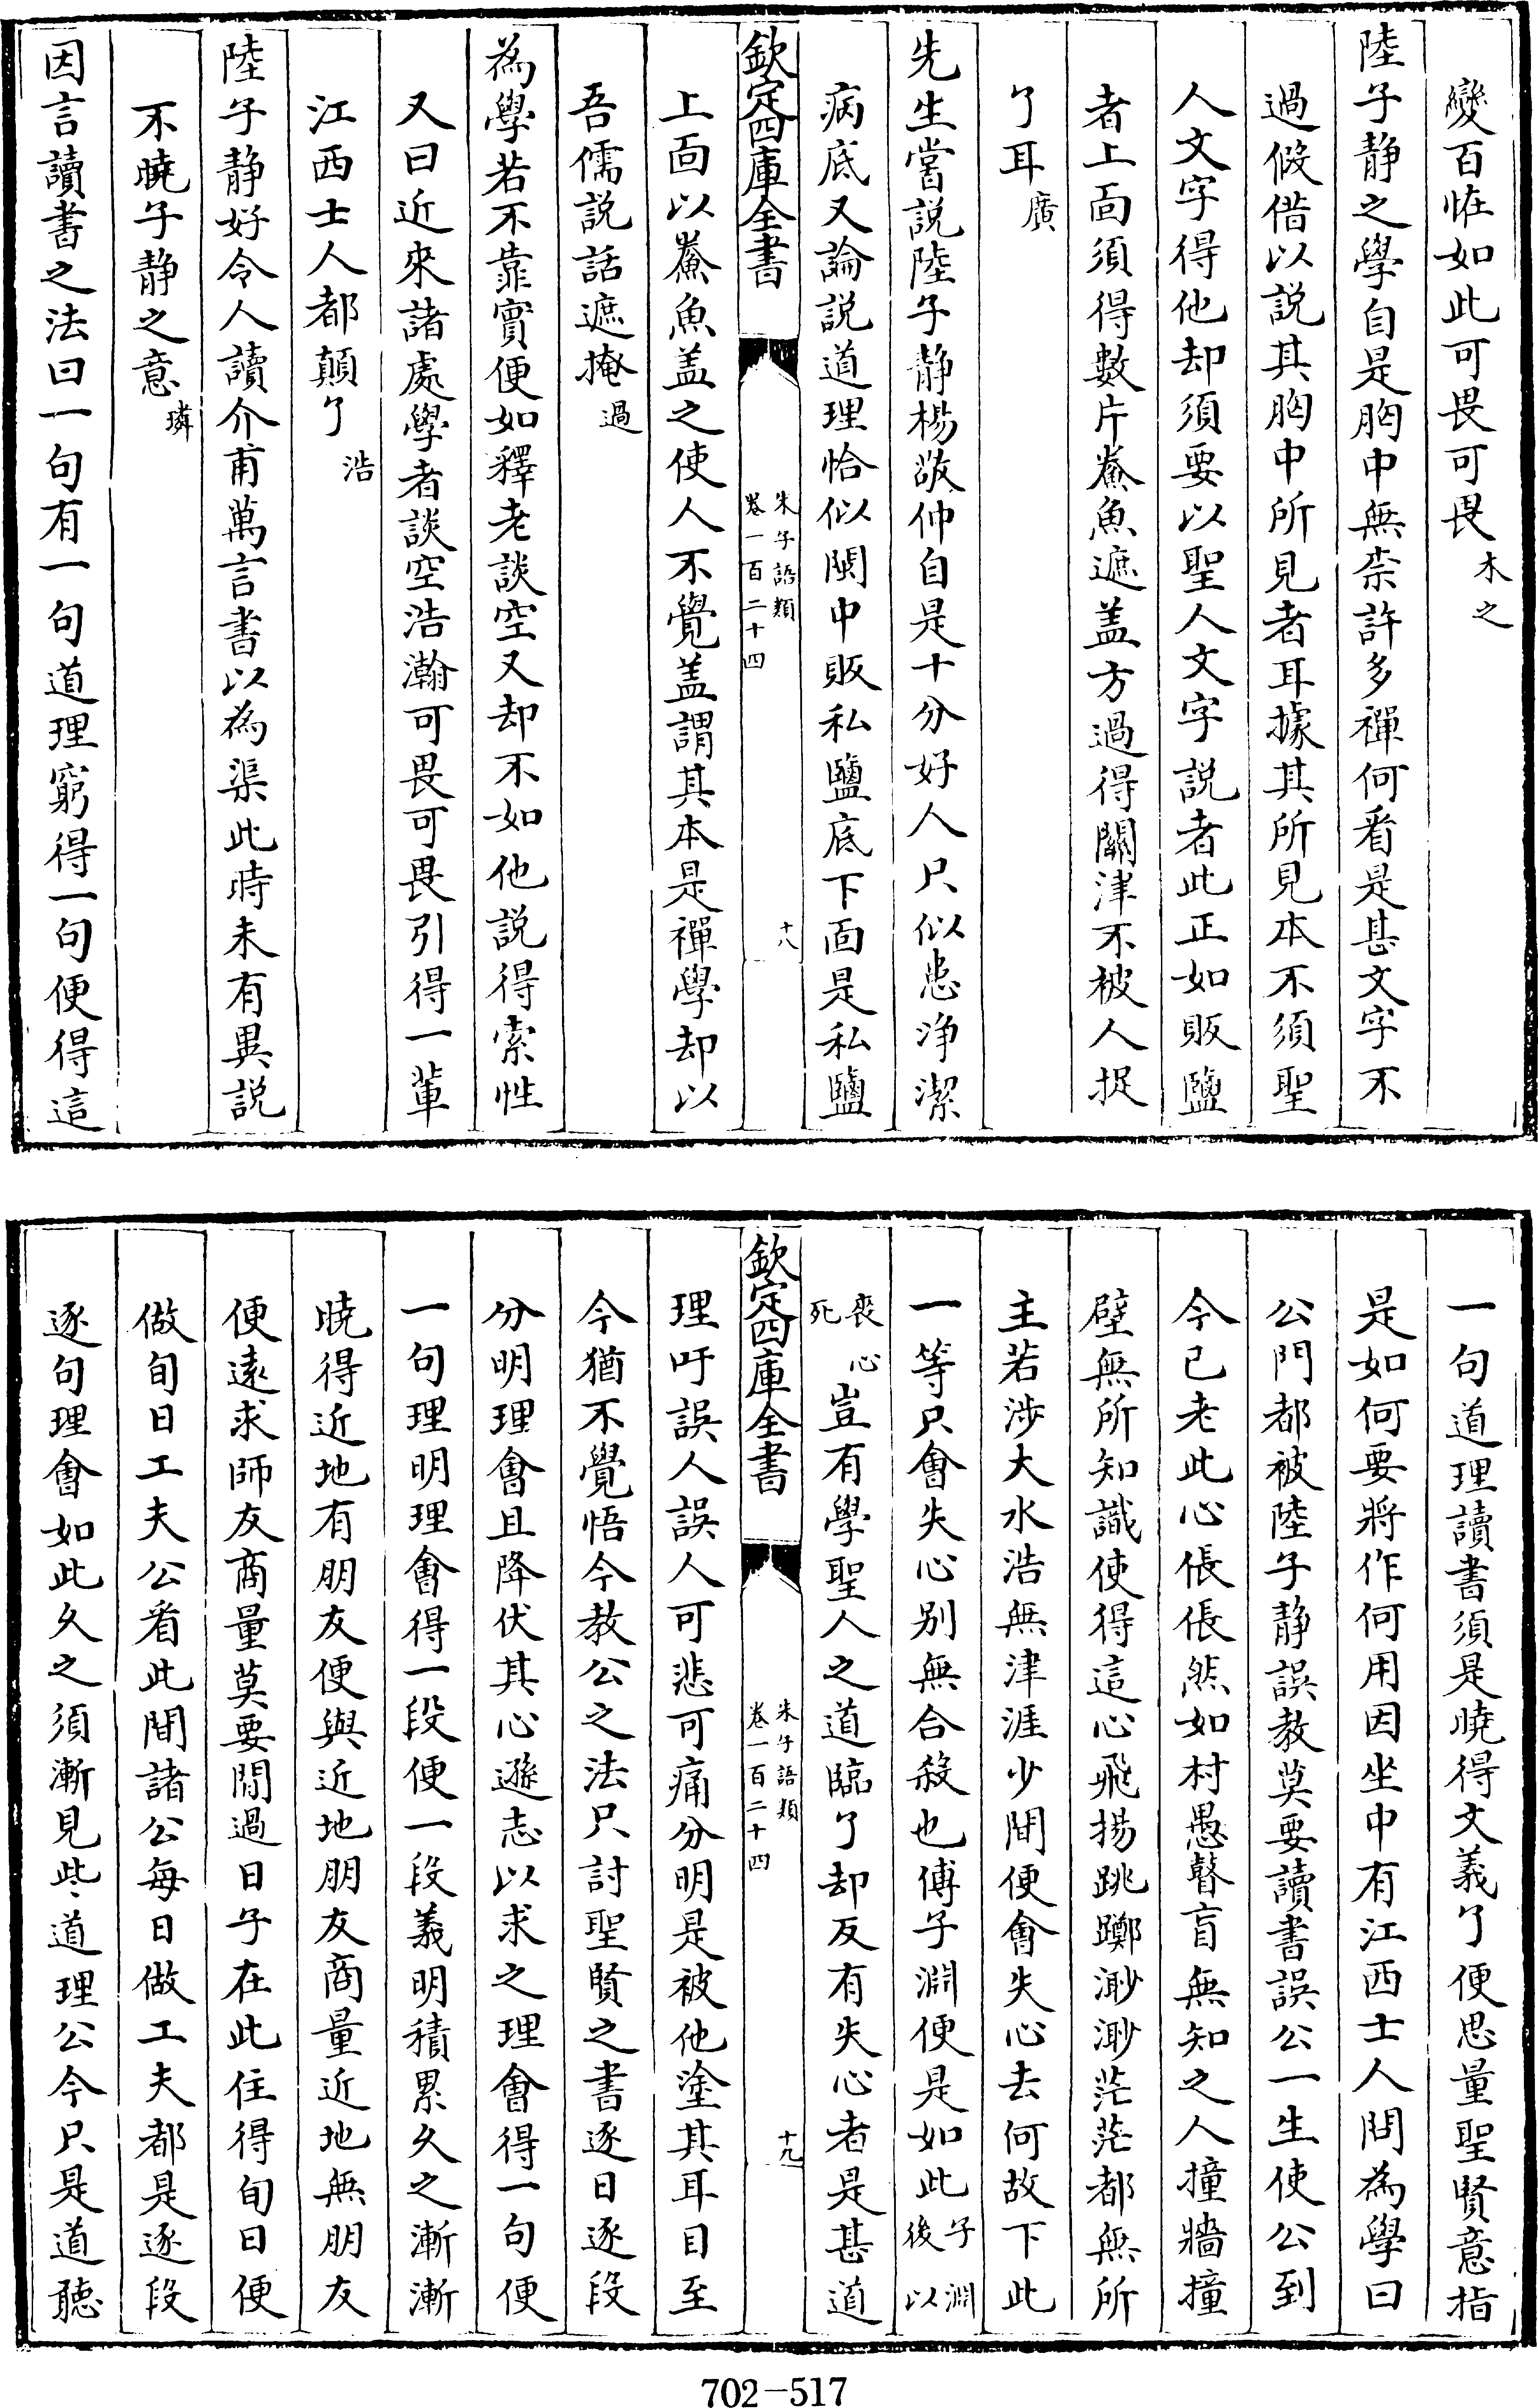 變百怪如此可畏可畏木之
陸子静之學自是胸中無柰許多禪何看是甚文字不
過假借以説其胸中所見者耳據其所見本不須聖
人文字得他却須要以聖人文字説者此正如販鹽
者上面須得數片鯗魚遮盖方過得關津不被人捉
了耳廣
先生嘗説陸子静楊敬仲自是十分好人只似患浄潔
病底又論説道理恰似閩中販私鹽底下面是私鹽
欽定四庫全書
朱子語類
卷一百二十四
十八
上面以鯗魚盖之使人不覺盖謂其本是禪學却以
吾儒説話遮掩過
為學若不靠實便如釋老談空又却不如他説得索性
又曰近來諸處學者談空浩瀚可畏可畏引得一輩
江西士人都顛了浩
陸子静好令人讀介甫萬言書以為渠此時未有異説
不曉子静之意璘
因言讀書之法曰一句有一句道理窮得一句便得這
一句道理讀書須是曉得文義了便思量聖賢意指
是如何要將作何用因坐中有江西士人問為學曰
公門都被陸子静誤教莫要讀書誤公一生使公到
今已老此心倀倀然如村愚瞽盲無知之人撞牆撞
壁無所知識使得這心飛揚跳躑渺渺茫茫都無所
主若涉大水浩無津涯少間便會失心去何故下此
一等只會失心别無合殺也傅子淵便是如此子淵後以
喪心死豈有學聖人之道臨了却反有失心者是甚道
欽定四庫全書
朱子語類
卷一百二十四
十九
理吁誤人誤人可悲可痛分明是被他塗其耳目至
今猶不覺悟今教公之法只討聖賢之書逐日逐段
分明理會且降伏其心遜志以求之理會得一句便
一句理明理會得一段便一段義明積累久之漸漸
曉得近地有朋友便與近地朋友商量近地無朋友
便遠求師友商量莫要閒過日子在此住得旬日便
做旬日工夫公看此間諸公每日做工夫都是逐段
逐句理會如此久之須漸見些道理公今只是道聽
702-517